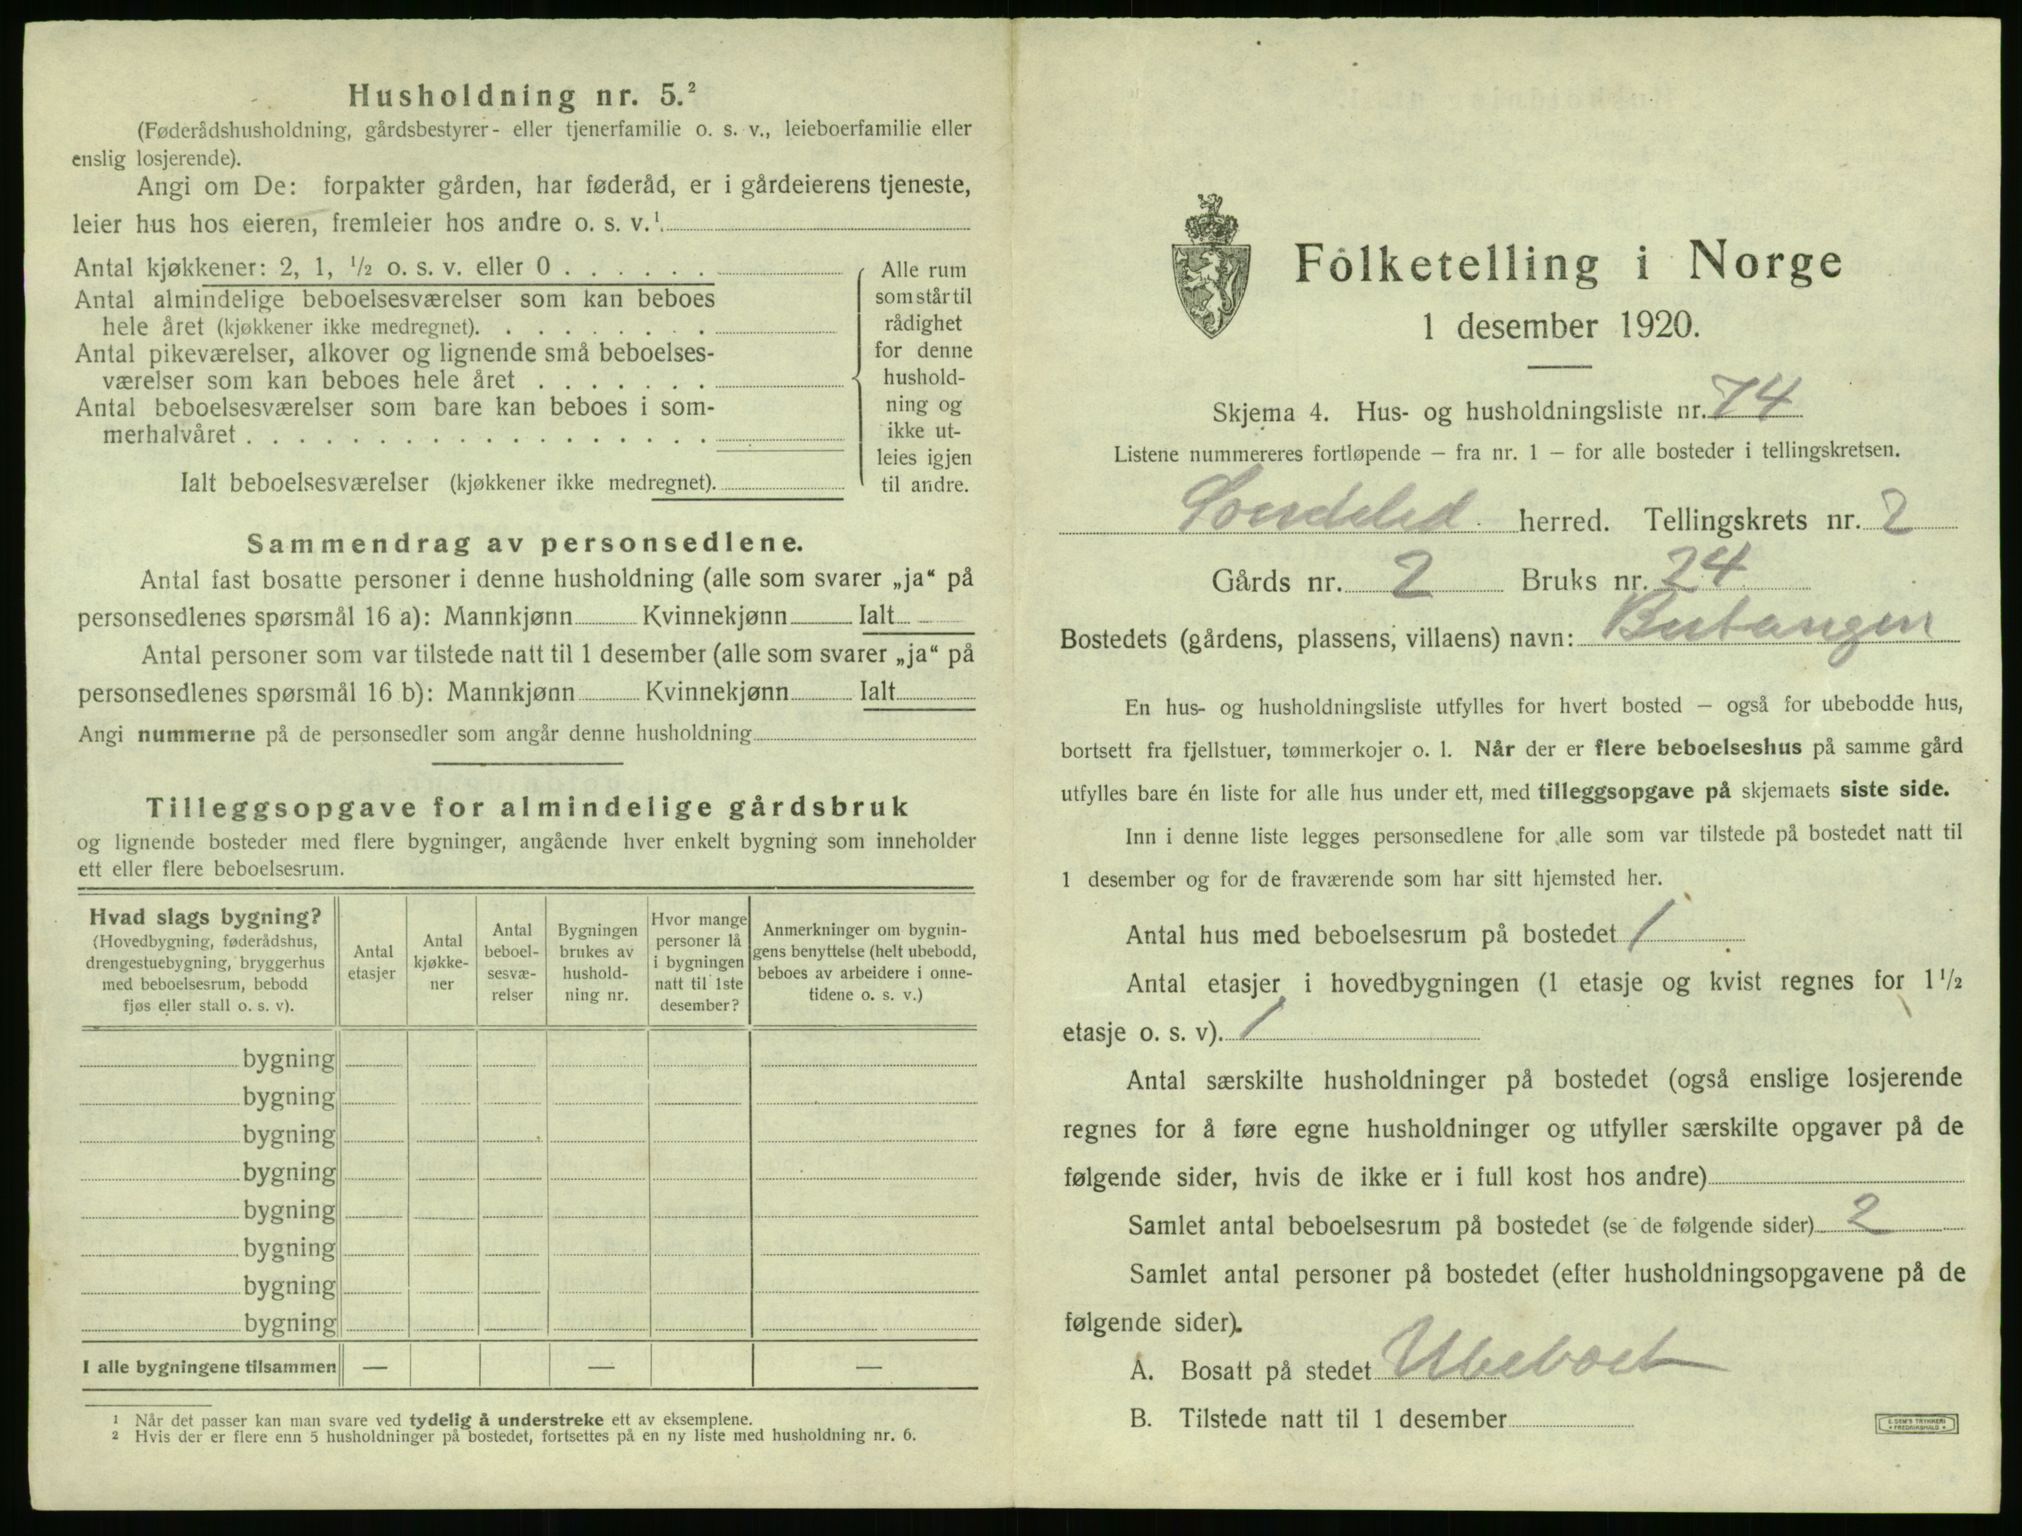 Husholdning nr. 5.²
(Føderådshusholdning, gårdsbestyrer- eller tjenerfamilie o. s. v., leieboerfamilie eller
enslig losjerende).
Angi om De: forpakter gården, har føderåd, er i gårdeierens tjeneste,
leier hus hos eieren, fremleier hos andre o. s. v.¹
Antal kjøkkener: 2, 1, ½ o. s. v. eller 0 . . . . . .
Antal almindelige beboelsesværelser som kan beboes
hele året (kjøkkener ikke medregnet). . . . . . . . .
Antal pikeværelser, alkover og lignende små beboelses-
værelser som kan beboes hele året . . . . . . .
Antal beboelsesværelser som bare kan beboes i som-
merhalvåret . . . . . . . . . . . . . . . . . .
Ialt beboelsesværelser (kjøkkener ikke medregnet).
Alle rum
som står til
rådighet
for denne
hushold-
ning og
ikke ut-
leies igjen
til andre.
Sammendrag av personsedlene.
Antal fast bosatte personer i denne husholdning (alle som svarer „ja“ på
personsedlenes spørsmål 16 a): Mannkjønn Kvinnekjønn Ialt
Antal personer som var tilstede natt til 1 desember (alle som svarer „ja“ på
personsedlenes spørsmål 16 b): Mannkjønn Kvinnekjønn Ialt
Angi nummerne på de personsedler som angår denne husholdning
Tilleggsopgave for almindelige gårdsbruk
og lignende bosteder med flere bygninger, angående hver enkelt bygning som inneholder
ett eller flere beboelsesrum.
Hvad slags bygning?
(Hovedbygning, føderådshus,
drengestuebygning, bryggerhus
med beboelsesrum, bebodd
fjøs eller stall o. s. v).
Antal
etasjer
Antal
kjøkke-
ner
Antal
beboel-
sesvæ-
relser
Bygningen
brukes av
hushold-
ning nr.
Hvor mange
personer lå
i bygningen
natt til 1ste
desember?
Anmerkninger om bygnin-
gens benyttelse (helt ubebodd,
beboes av arbeidere i onne-
tidene o. s. v.)
bygning
bygning
bygning
bygning
bygning
bygning
bygning
bygning
I alle bygningene tilsammen — — —
¹ Når det passer kan man svare ved tydelig å understreke ett av eksemplene.
² Hvis der er flere enn 5 husholdninger på bostedet, fortsettes på en ny liste med husholdning nr. 6.
Folketelling i Norge
1 desember 1920.
Skjema 4. Hus- og husholdningsliste nr. 74
Listene nummereres fortløpende – fra nr. 1 – for alle bosteder i tellingskretsen.
Søndeled herred. Tellingskrets nr. 2
Gårds nr. 2 Bruks nr. 24
Bostedets (gårdens, plassens, villaens) navn: Butangen
En hus- og husholdningsliste utfylles for hvert bosted – også for ubebodde hus,
bortsett fra fjellstuer, tømmerkojer o. l. Når der er flere beboelseshus på samme gård
utfylles bare én liste for alle hus under ett, med tilleggsopgave på skjemaets siste side.
Inn i denne liste legges personsedlene for alle som var tilstede på bostedet natt til
1 desember og for de fraværende som har sitt hjemsted her.
Antal hus med beboelsesrum på bostedet 1
Antal etasjer i hovedbygningen (1 etasje og kvist regnes for 1½
etasje o. s. v). 1
Antal særskilte husholdninger på bostedet (også enslige losjerende
regnes for å føre egne husholdninger og utfyller særskilte opgaver på de
følgende sider, hvis de ikke er i full kost hos andre)
Samlet antal beboelsesrum på bostedet (se de følgende sider) 2
Samlet antal personer på bostedet (efter husholdningsopgavene på de
følgende sider).
A. Bosatt på stedet Ubeboet
B. Tilstede natt til 1 desember